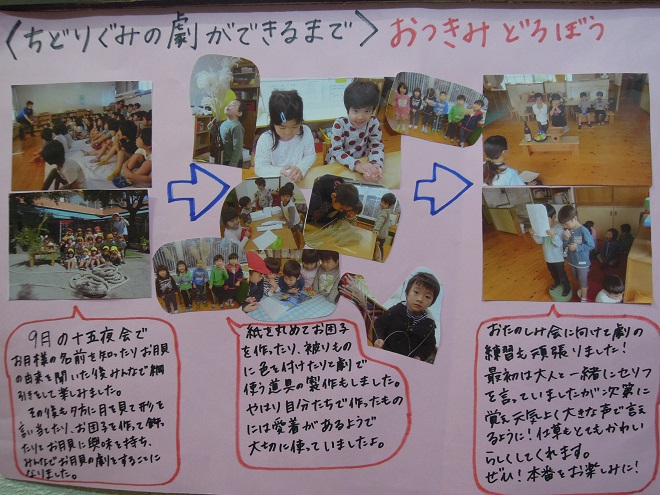 〈ちどりぐみの劇ができるまで〉 おつきみどろぼう
9月の十五夜会で
お月様の名前を知ったりお月見
の由来を聞いた後みんなで綱
引きをして楽しみました。
その後も夕方に月を見て形を
言い当たり、お団子を作って飾っ
たりとお月見に興味を持ち、
みんなでお月見の劇をすることに
なりました。
紙を丸めてお団子
を作ったり、被りもの
に色を付けたりと劇で
使う道具の製作もしました。
やはり自分たちで作ったもの
には愛着があるようで
大切に使っていましたよ。
おたのしみ会に向けて劇の
練習も頑張りました!
最初は大人と一緒にセリフ
を言っていましたが次第に
覚え元気よく大きな声で言え
るように!仕草もとてもかわい
らしくしてくれます。
ぜひ!本番をお楽しみに!